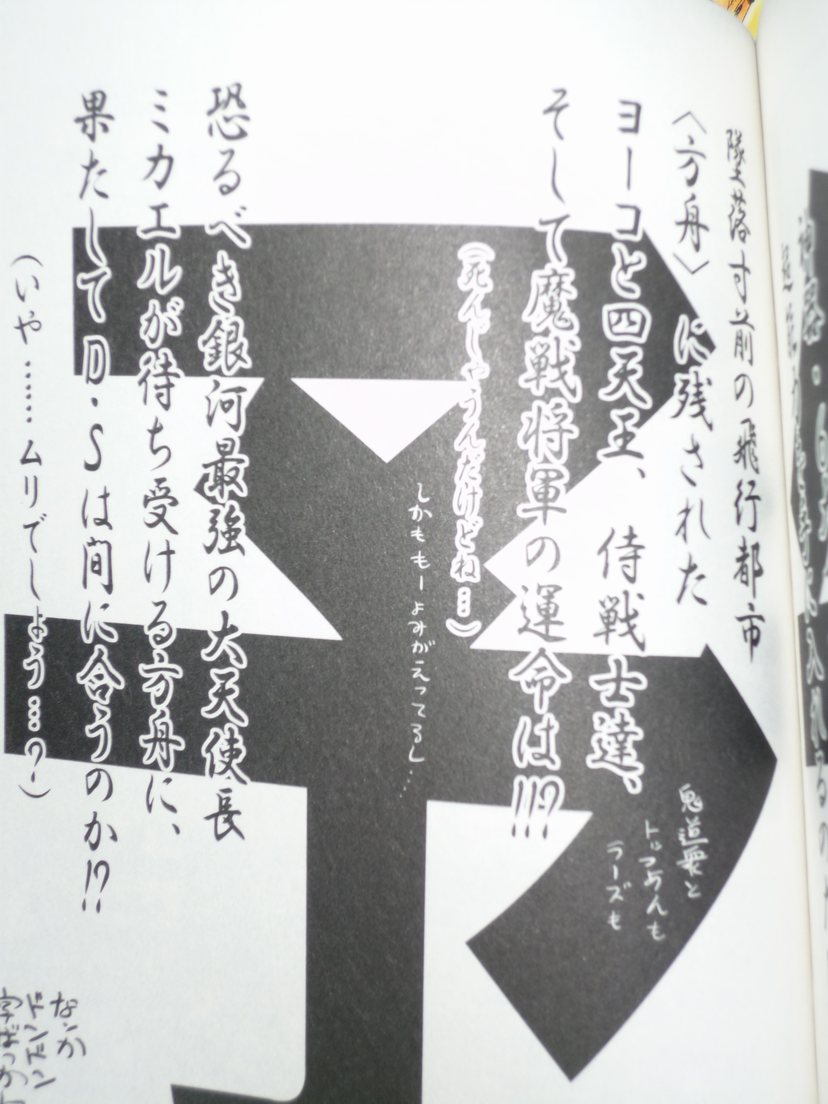 墜落寸前の飛行都市
〈方舟〉に残された
ヨーコと四天王、侍戦士達、
鬼道衆と
トッつあんも
ラーズも
そして魔戦将軍の運命は!!?
(死んじゃうんだけどね…)
しかももーよみがえってるし……
恐るべき銀河最強の大天使長
ミカエルが待ち受ける方舟に、
果たしてD・Sは間に合うのか!?
(いや……ムリでしょう…?)
なんか
ドンドン
字ばっか
予